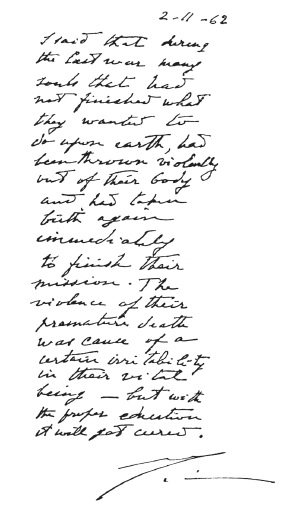 2-11-62
I said that during
the last war many
souls that had
not finished what
they wanted to
do upon earth, had
been thrown violently
out of their body
and had taken
birth again
immediately
to finish their
mission. The
violence of their
premature death
was cause of a
certain irritability
in their vital
being — but with
the proper education
it will get cured.